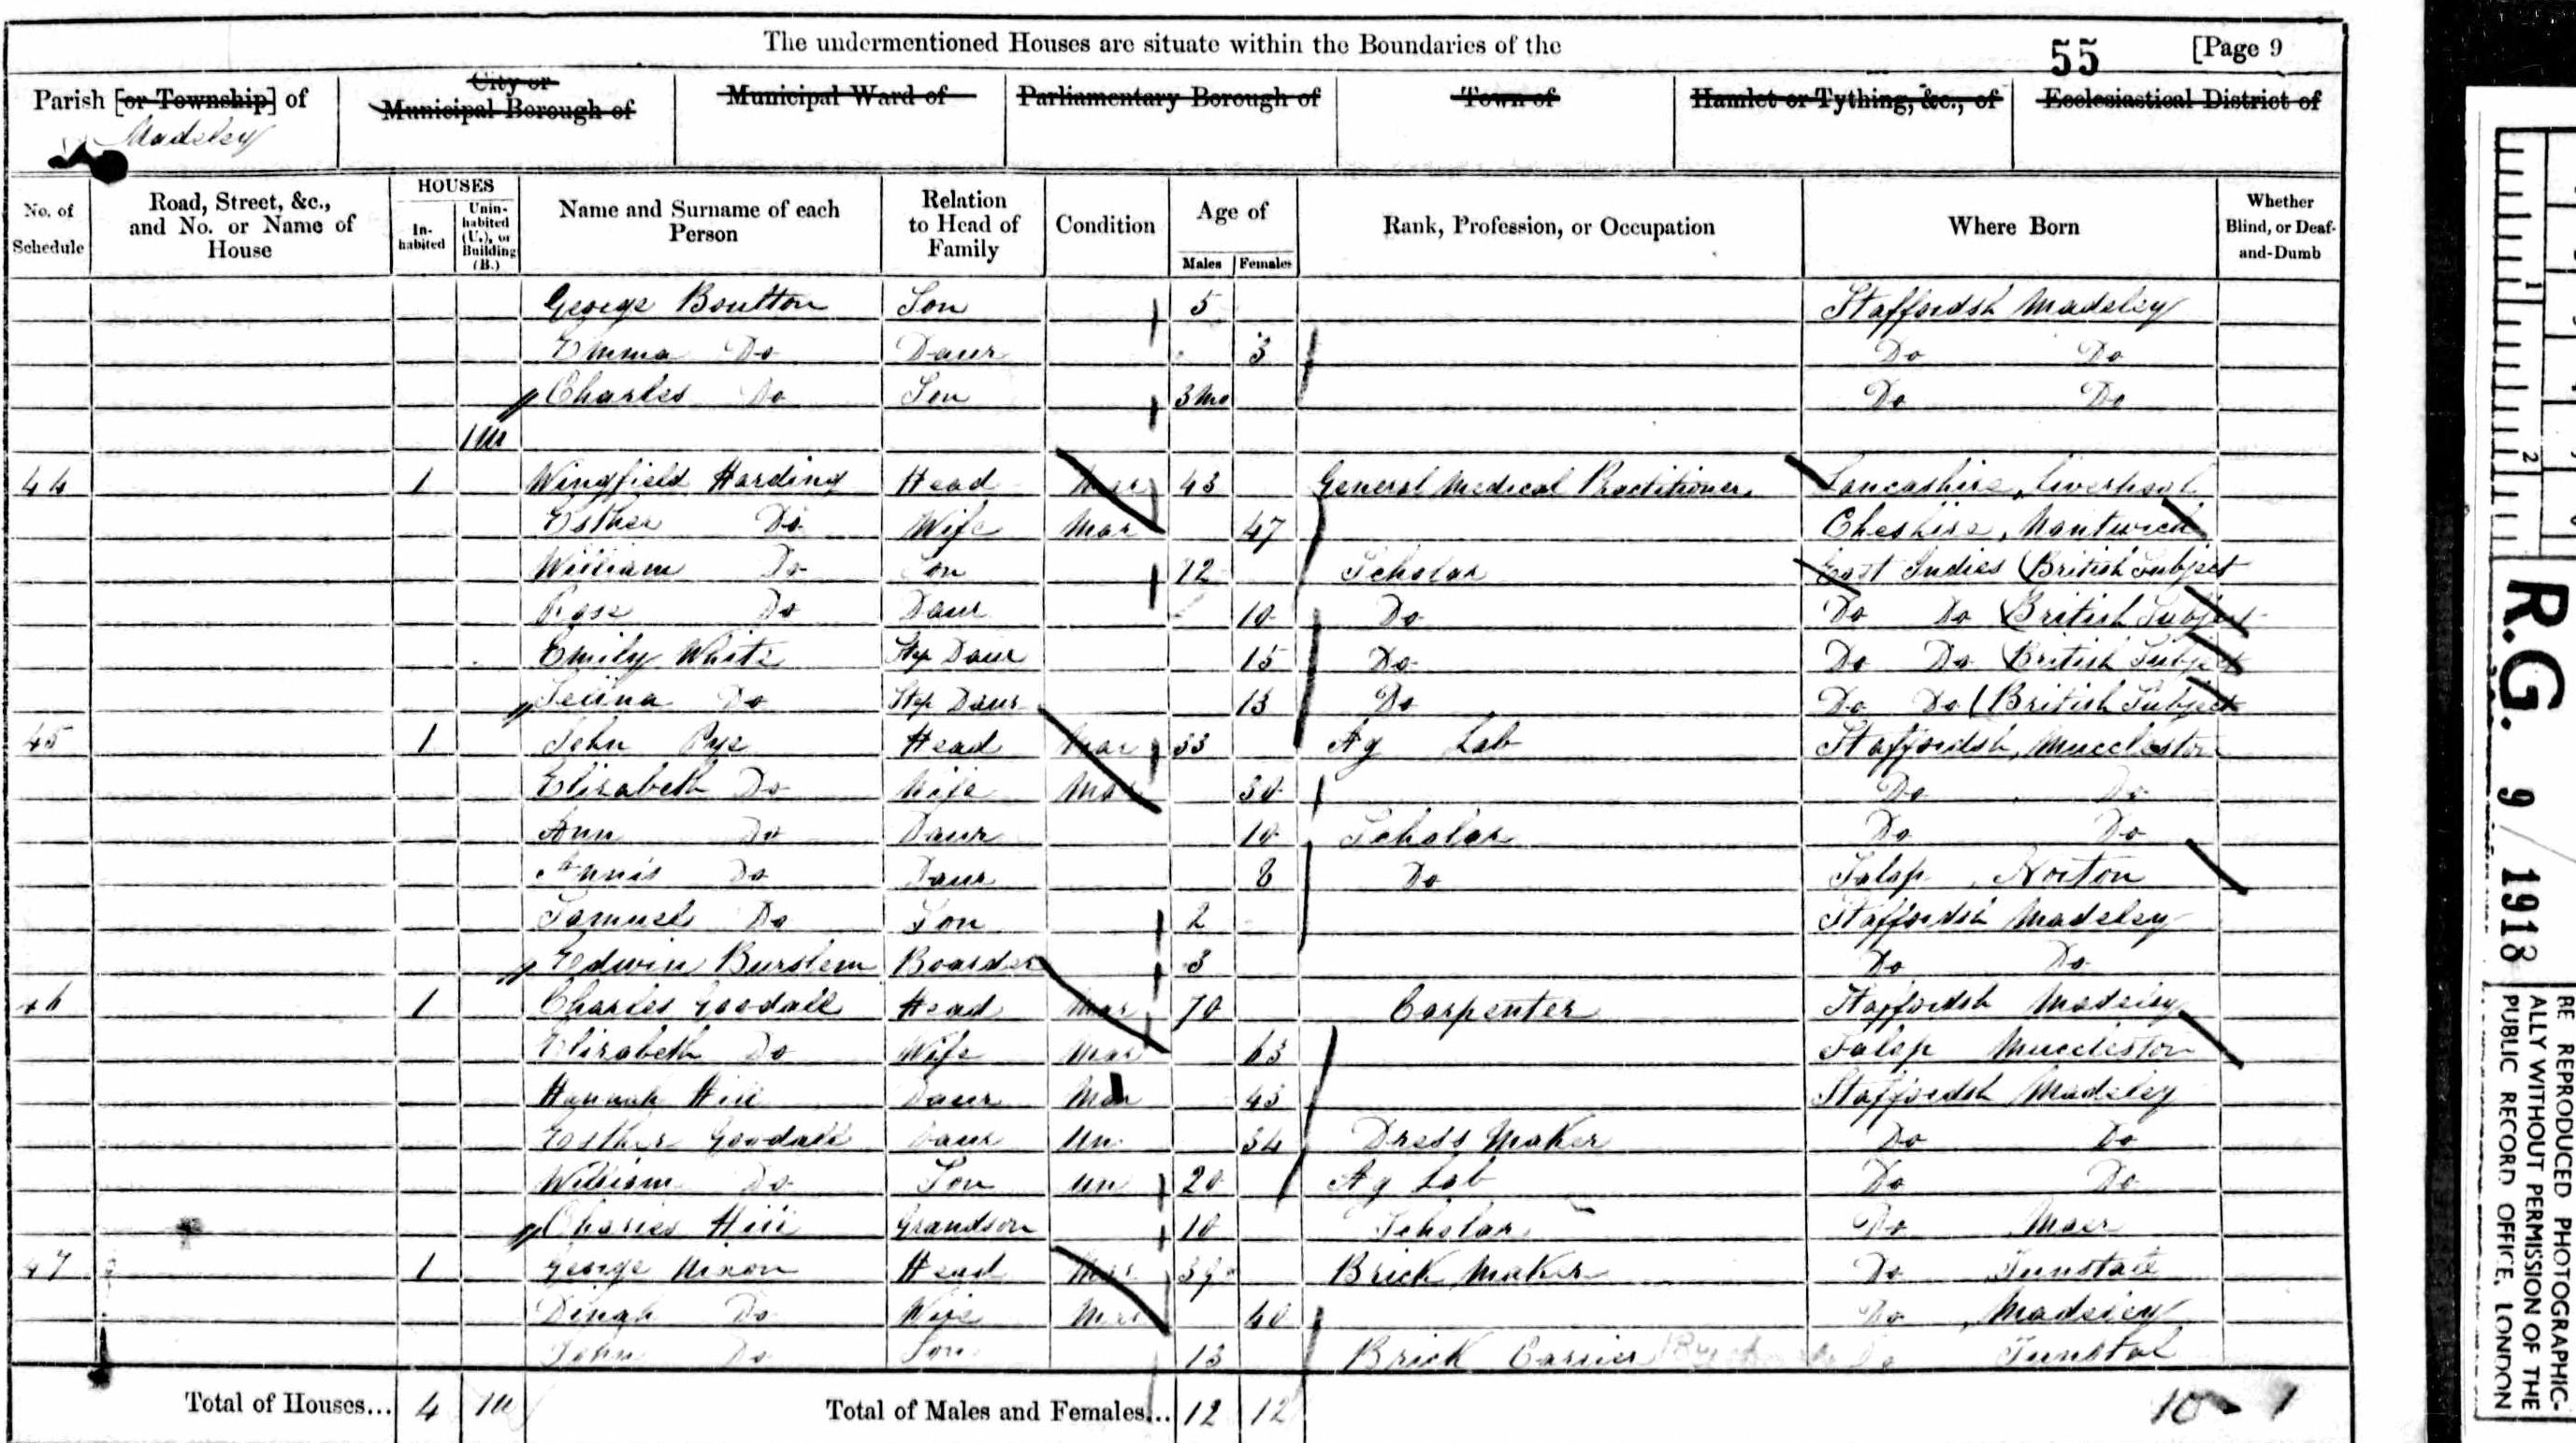 The undermentioned Houses are situate within the Boundaries of the 55 [Page 9
Parish [or Township] of Madeley
City or Municipal Borough of
Municipal Ward of
Parliamentary Borough of
Town of
Hamlet or Tything, &c., of
Ecclesiastical District of
No. of Schedule
Road, Street, &c., and No. or Name of House
HOUSES
In-habited
Unin-habited (U.), or Building (B.)
Name and Surname of each Person
Relation to Head of Family
Condition
Age of
Males Females
Rank, Profession, or Occupation
Where Born
Whether Blind, or Deaf-and-Dumb
George Boulton Son 5 Staffordsh Madeley
Emma Do Daur 3 Do Do
Charles Do Son 3 Mo Do Do
1 U
44 1 Wingfield Harding Head Mar 43 General Medical Practitioner Lancashire, Liverpool
Esther Do Wife Mar 47 Cheshire, Nantwich
William Do Son 12 Scholar East Indies (British Subject
Rose Do Daur 10 Do Do Do (British Subject
Emily White Step Daur 15 Do Do Do (British Subject
Selina Do Step Daur 13 Do Do Do (British Subject
45 1 John Pye Head Mar 33 Ag Lab Staffordsh, Muccleston
Elizabeth Do Wife Mar 30 Do Do
Ann Do Daur 10 Scholar Do Do
Annis Do Daur 8 Do Salop, Norton
Samuel Do Son 2 Staffordsh Madeley
Edwin Burslem Boarder 3 Do Do
46 1 Charles Goodall Head Mar 70 Carpenter Staffordsh Madeley
Elizabeth Do Wife Mar 63 Salop Muccleston
Hannah Hill Daur Mar 43 Staffordsh Madeley
Esther Goodall Daur Un 34 Dress Maker Do Do
William Do Son Un 20 Ag Lab Do Do
Charles Hill Grandson 10 Scholar Do Maer
47 1 George Nixon Head Mar 39 Brick Maker Do Tunstall
Dinah Do Wife Mar 40 Do, Madeley
John Do Son 13 Brick Carrier Do Tunstal
Total of Houses... 4 1U Total of Males and Females... 12 12
10 - 1
R.G. 9/1913
RE REPRODUCED PHOTOGRAPHIC-
ALLY WITHOUT PERMISSION OF THE
PUBLIC RECORD OFFICE, LONDON